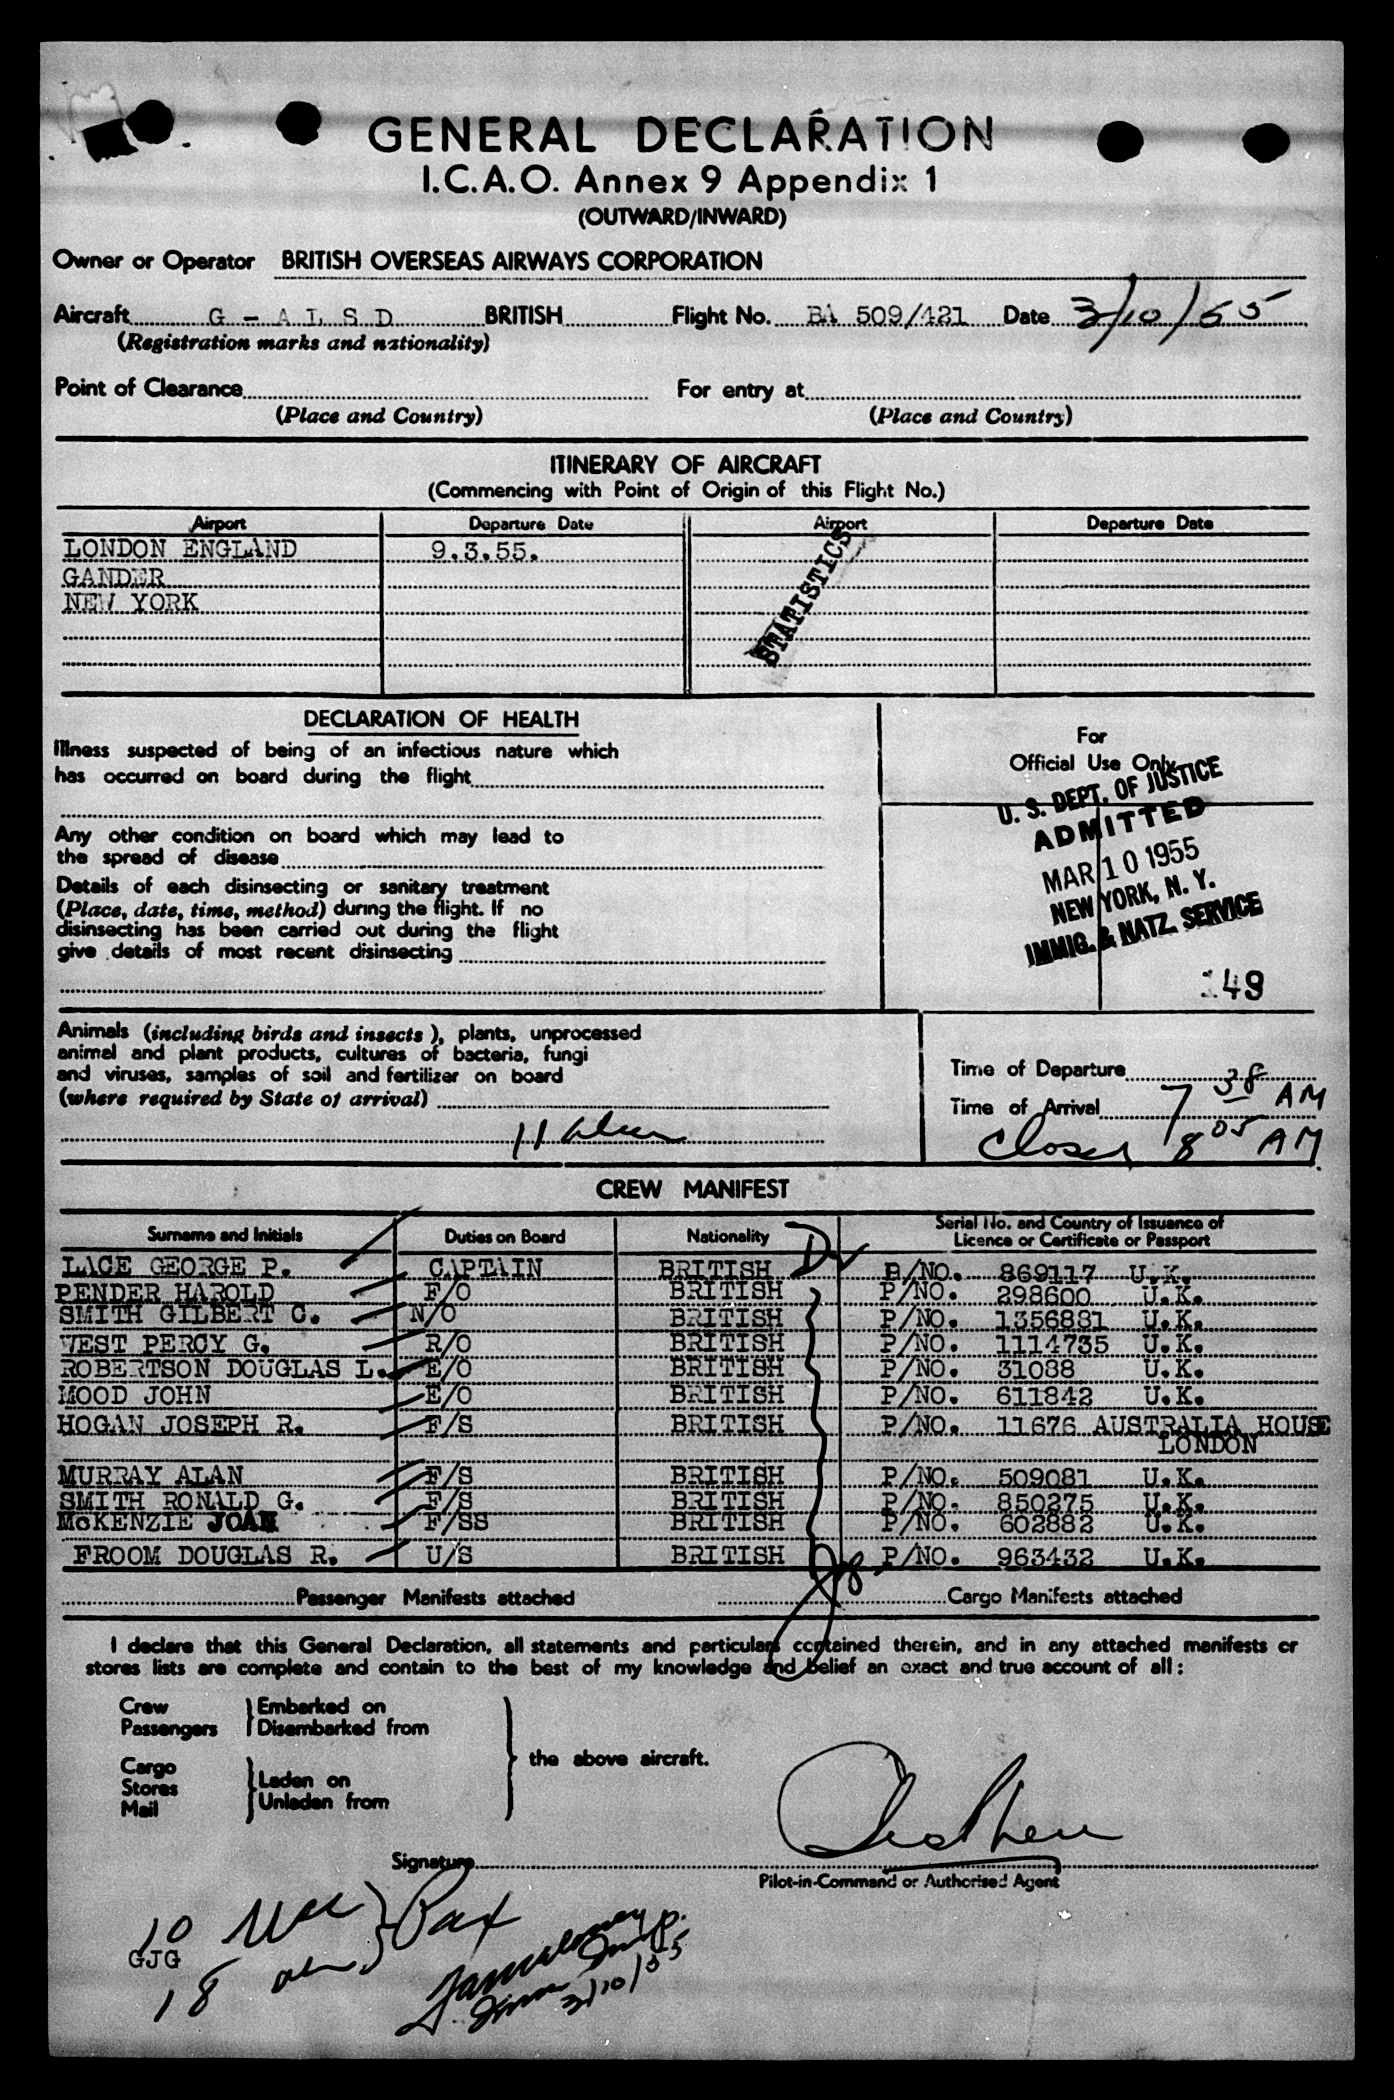 GENERAL DECLARATION
I.C.A.O. Annex 9 Appendix 1
(OUTWARD/INWARD)
Owner or Operator BRITISH OVERSEAS AIRWAYS CORPORATION
Aircraft G - A L S D BRITISH Flight No. BA 509/421 Date 3/10/55
(Registration marks and nationality)
Point of Clearance For entry at
(Place and Country) (Place and Country)
ITINERARY OF AIRCRAFT
(Commencing with Point of Origin of this Flight No.)
Airport Departure Date Airport Departure Date
LONDON ENGLAND 9.3.55.
GANDER
NEW YORK
STATISTICS
DECLARATION OF HEALTH
Illness suspected of being of an infectious nature which
has occurred on board during the flight
Any other condition on board which may lead to
the spread of disease
Details of each disinsecting or sanitary treatment
(Place, date, time, method) during the flight. If no
disinsecting has been carried out during the flight
give details of most recent disinsecting
For
Official Use Only
U. S. DEPT. OF JUSTICE
ADMITTED
MAR 10 1955
NEW YORK, N. Y.
IMMIG. & NATZ. SERVICE
149
Animals (including birds and insects), plants, unprocessed
animal and plant products, cultures of bacteria, fungi
and viruses, samples of soil and fertilizer on board
(where required by State of arrival)
11
Time of Departure
Time of Arrival 7 38 AM
Closed 8 05 AM
CREW MANIFEST
Surname and Initials Duties on Board Nationality Serial No. and Country of Issuance of
Licence or Certificate or Passport
LACE GEORGE P. CAPTAIN BRITISH P/NO. 869117 U.K.
PENDER HAROLD F/O BRITISH P/NO. 298600 U.K.
SMITH GILBERT C. N/O BRITISH P/NO. 1356881 U.K.
WEST PERCY G. R/O BRITISH P/NO. 1114735 U.K.
ROBERTSON DOUGLAS L. E/O BRITISH P/NO. 31088 U.K.
MOOD JOHN E/O BRITISH P/NO. 611842 U.K.
HOGAN JOSEPH R. F/S BRITISH P/NO. 11676 AUSTRALIA HOUSE
LONDON
MURRAY ALAN F/S BRITISH P/NO. 509081 U.K.
SMITH RONALD G. F/S BRITISH P/NO. 850275 U.K.
McKENZIE JOAN F/SS BRITISH P/NO. 602882 U.K.
FROOM DOUGLAS R. U/S BRITISH P/NO. 963432 U.K.
Passenger Manifests attached Cargo Manifests attached
I declare that this General Declaration, all statements and particulars contained therein, and in any attached manifests or
stores lists are complete and contain to the best of my knowledge and belief an exact and true account of all:
Crew
Passengers
Embarked on
Disembarked from
Cargo
Stores
Mail
Laden on
Unladen from
the above aircraft.
Signature
Pilot-in-Command or Authorised Agent
10 Pax
GJG
18
3/10/55